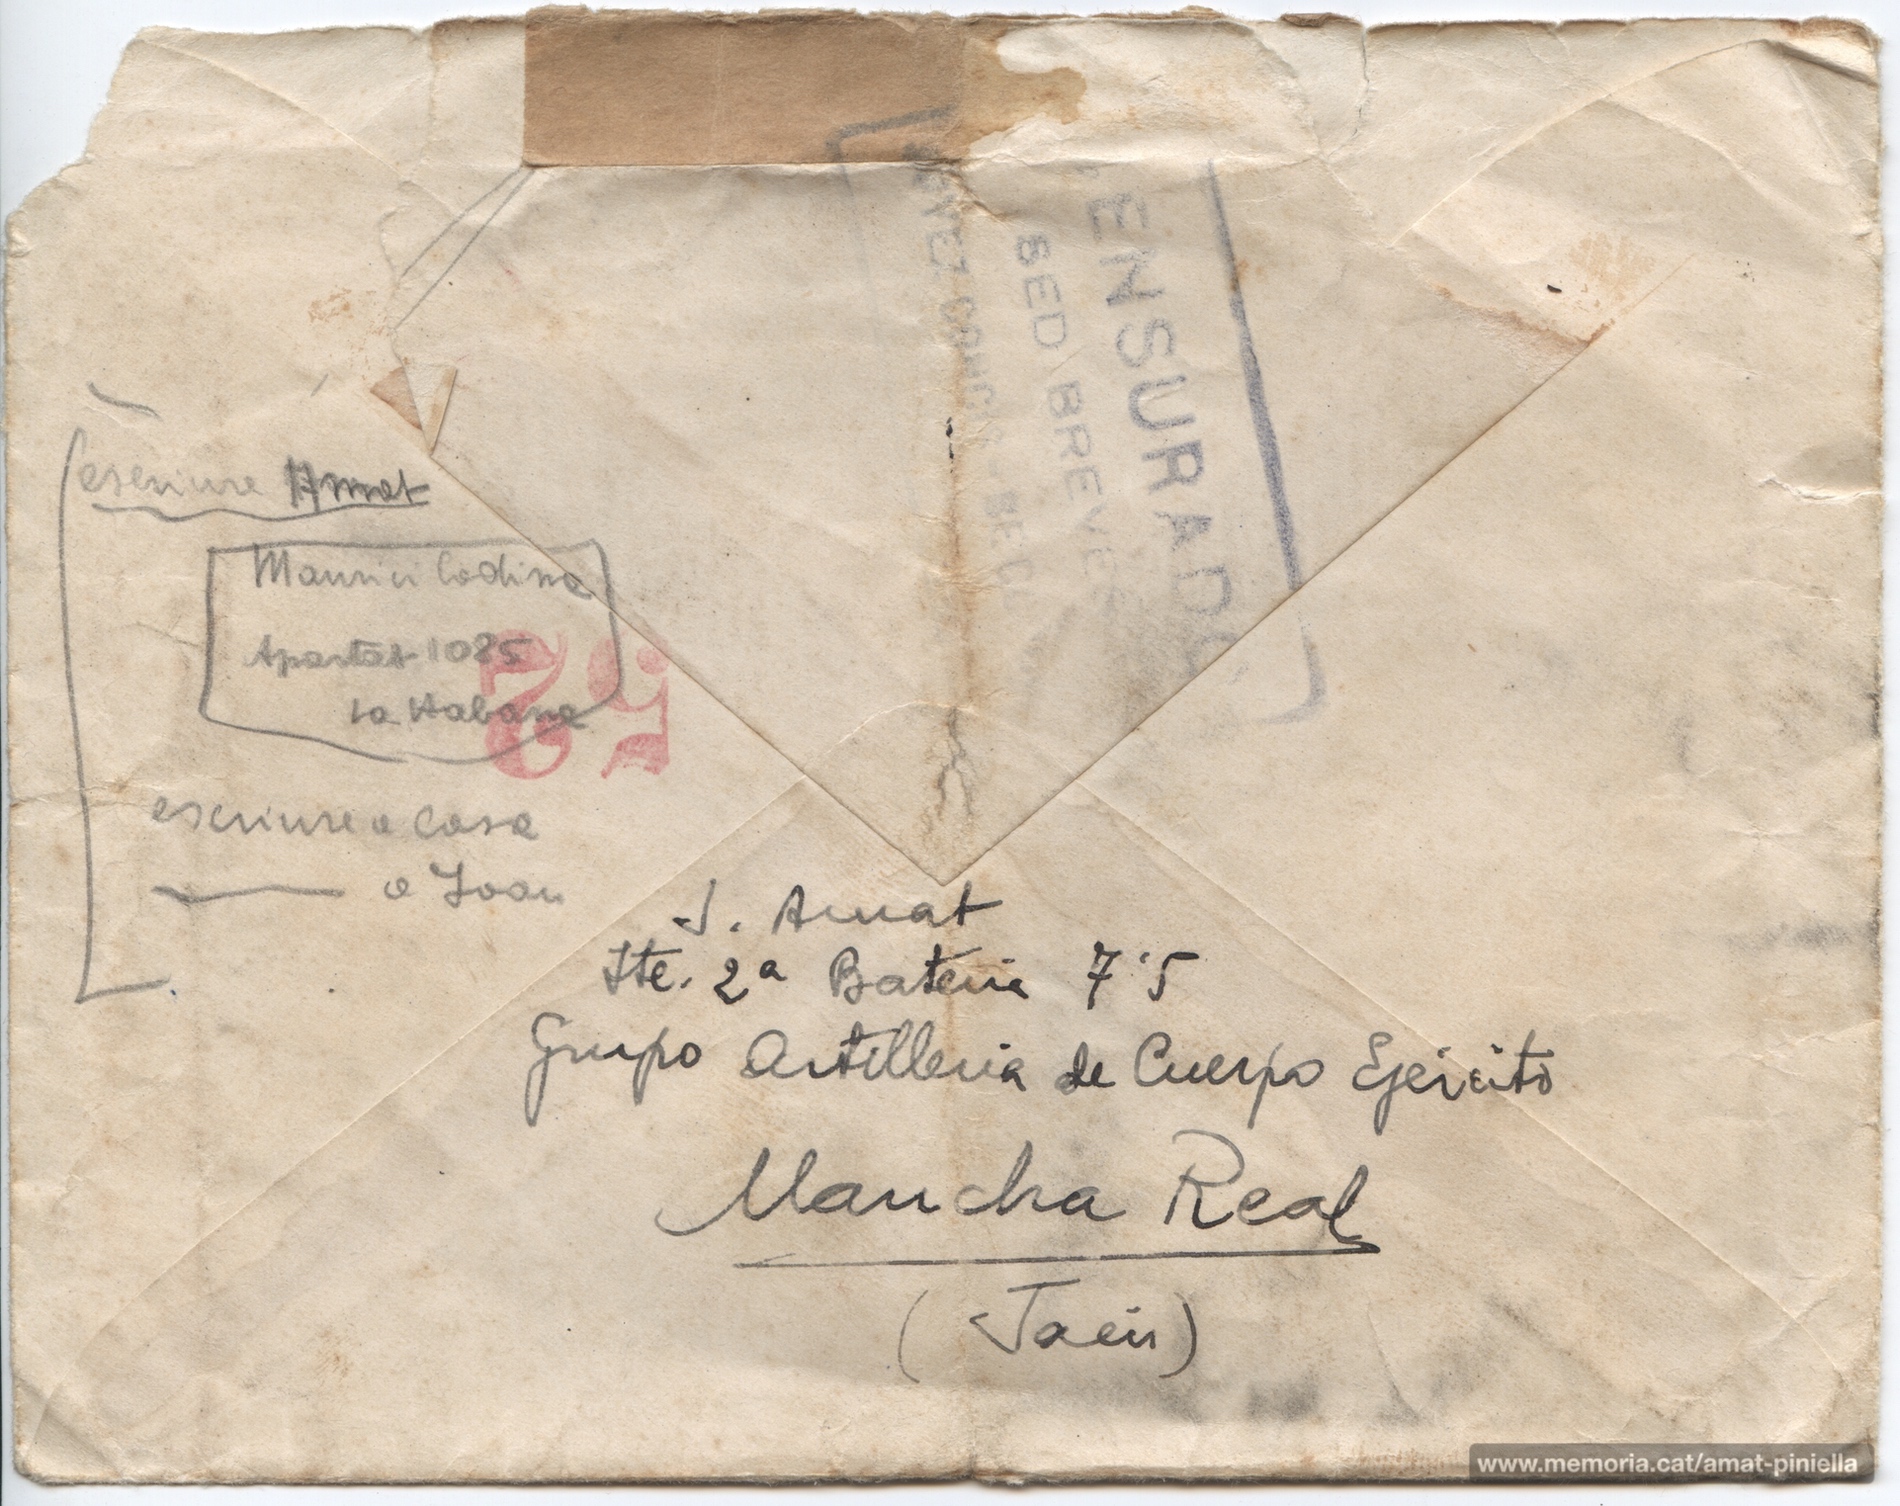 escriure Amat
Maurici Codina
Apartat 1085
La Habana
escriure a casa
a Joan
25
CENSURADO
SED BREVES
J. Amat
Tte. 2ª Bateria 7'5
Grupo Artilleria de Cuerpo Ejército
Mancha Real
(Jaén)
www.memoria.cat/amat-piniella